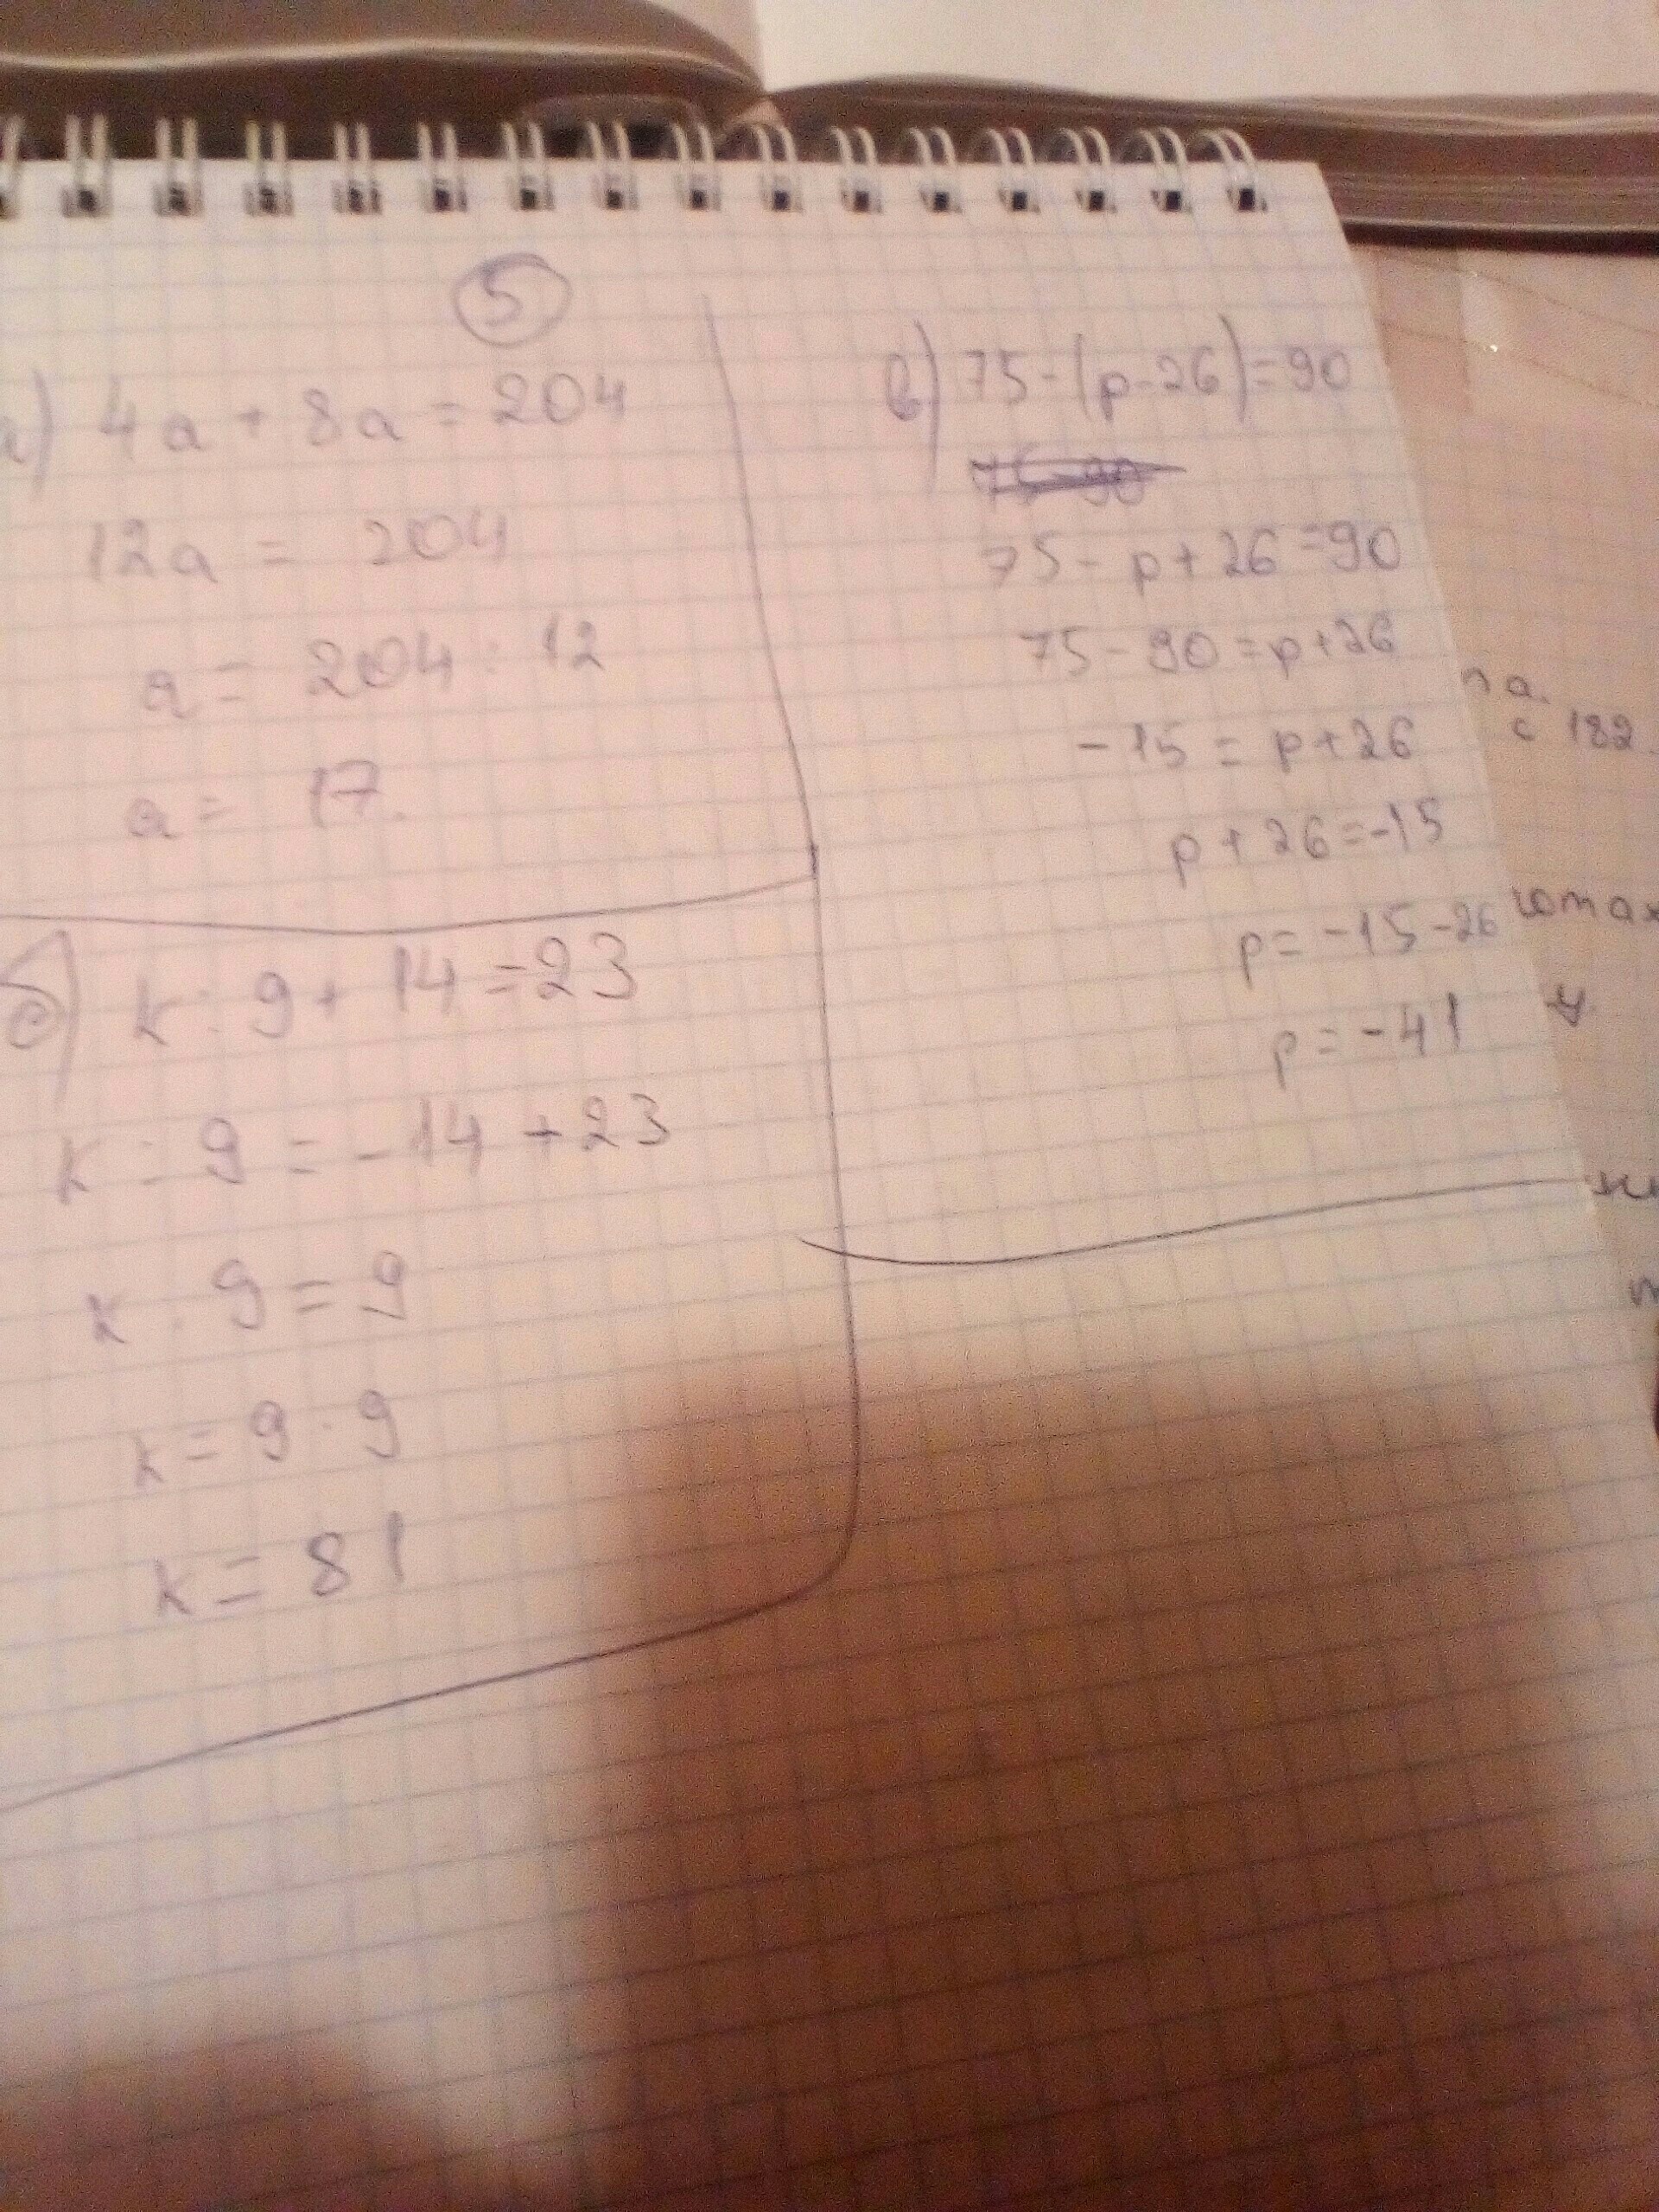 5
а) 4a + 8a = 204
12a = 204
a = 204 : 12
a = 17.
б) k : 9 + 14 = 23
k : 9 = -14 + 23
k : 9 = 9
k = 9 · 9
k = 81
в) 75 - (p - 26) = 90
75 - p + 26 = 90
75 - 90 = p + 26
-15 = p + 26
p + 26 = -15
p = -15 - 26
p = -41
с 182.